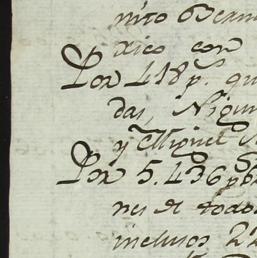 nito Ocam
xico con
Por 418 p.s qu
das, Nigu
y Miguel
Por 5.436 p.s
nes de todos
inclusos 22